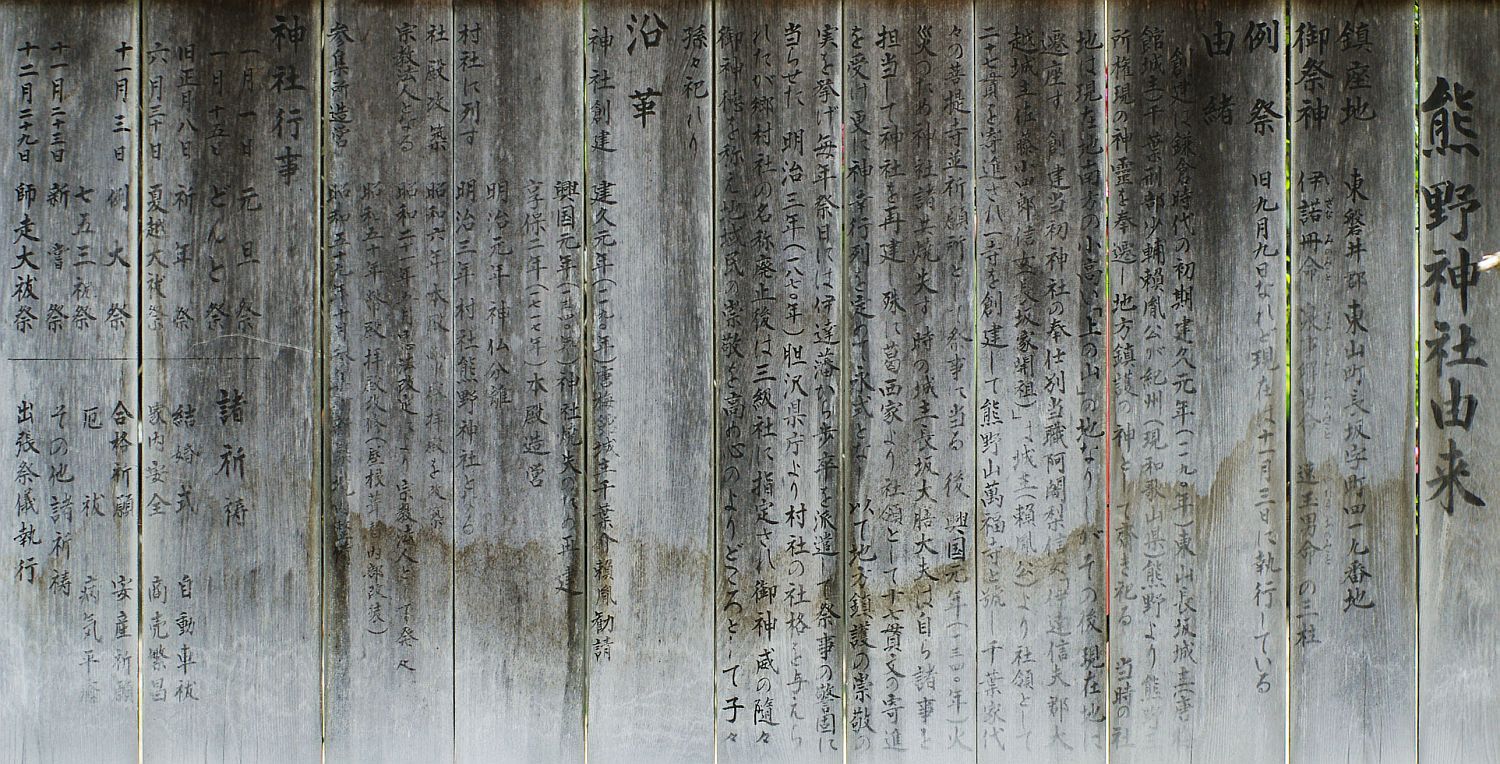 熊野神社由来
鎮座地 東磐井郡東山町長坂字町四一九番地
御祭神 伊諾冊命 速玉男命 の三柱
例祭 旧九月九日なれど現在は十一月三日に執行している
由緒
創建は鎌倉時代の初期建久元年(一一九〇年)東山長坂城主唐梅
館城主千葉刑部少輔頼胤公が紀州(現和歌山県)熊野より熊野三
所権現の神霊を奉遷し地方鎮護の神として斎き祀る 当時の社
地は現在地南方の小高い「上の山」の地なりしが千の後現在地に
遷座す 創建当初神社の奉仕別当職阿闍梨信 伊達信夫郡大
越城主佐藤小四郎信 長坂家開祖)」は城主(頼胤公)より社領として
二十七貫を寄進され一寺を創建して熊野山萬福寺と号し千葉家代
々の菩提寺並祈願所とし祭事に当る 後 興国元年(一三四〇年)火
災のため神社諸共焼失す 時の城主長坂大膳大夫は自ら諸事を
担当して神社を再建し殊に葛西家より社領として十七貫文の寄進
を受け更に神幸行列を定めて永式となし以て地方鎮護の崇敬の
実を挙げ毎年祭日には伊達藩から歩卒を派遣して祭事の警固に
当らせた 明治三年(一八七〇年)胆沢県庁より村社の社格を与えら
れたが郷村社の名称廃止後は三級社に指定され御神威の随々
御神徳を称え地域民の崇敬を高め心のよりどころとして子々
孫々祀れり
沿革
神社創建 建久元年(一一九〇年)唐梅館城主千葉介頼胤勧請
興国元年(一三四〇年)神社焼失のため再建
享保二年(一七一七年)本殿造営
明治元年神仏分離
村社に列す 明治三年村社熊野神社となる
社殿改築 昭和六年本殿 拝殿を改築
宗教法人となる 昭和二十一年 により宗教法人として発足
昭和五十年 拝殿改修(屋根葺替内部改装)
参集所造営 昭和五十九年十月
神社行事
一月一日 元旦祭
一月十五日 どんと祭
旧正月八日 祈年祭
六月三十日 夏越大祓祭
十一月三日 例大祭
七五三祝祭
十一月二十三日 新嘗祭
十二月二十九日 師走大祓祭
諸祈祷
結婚式 自動車祓
家内安全 商売繁昌
合格祈願 安産祈願
厄祓 病気平癒
その他諸祈祷
出張祭儀執行